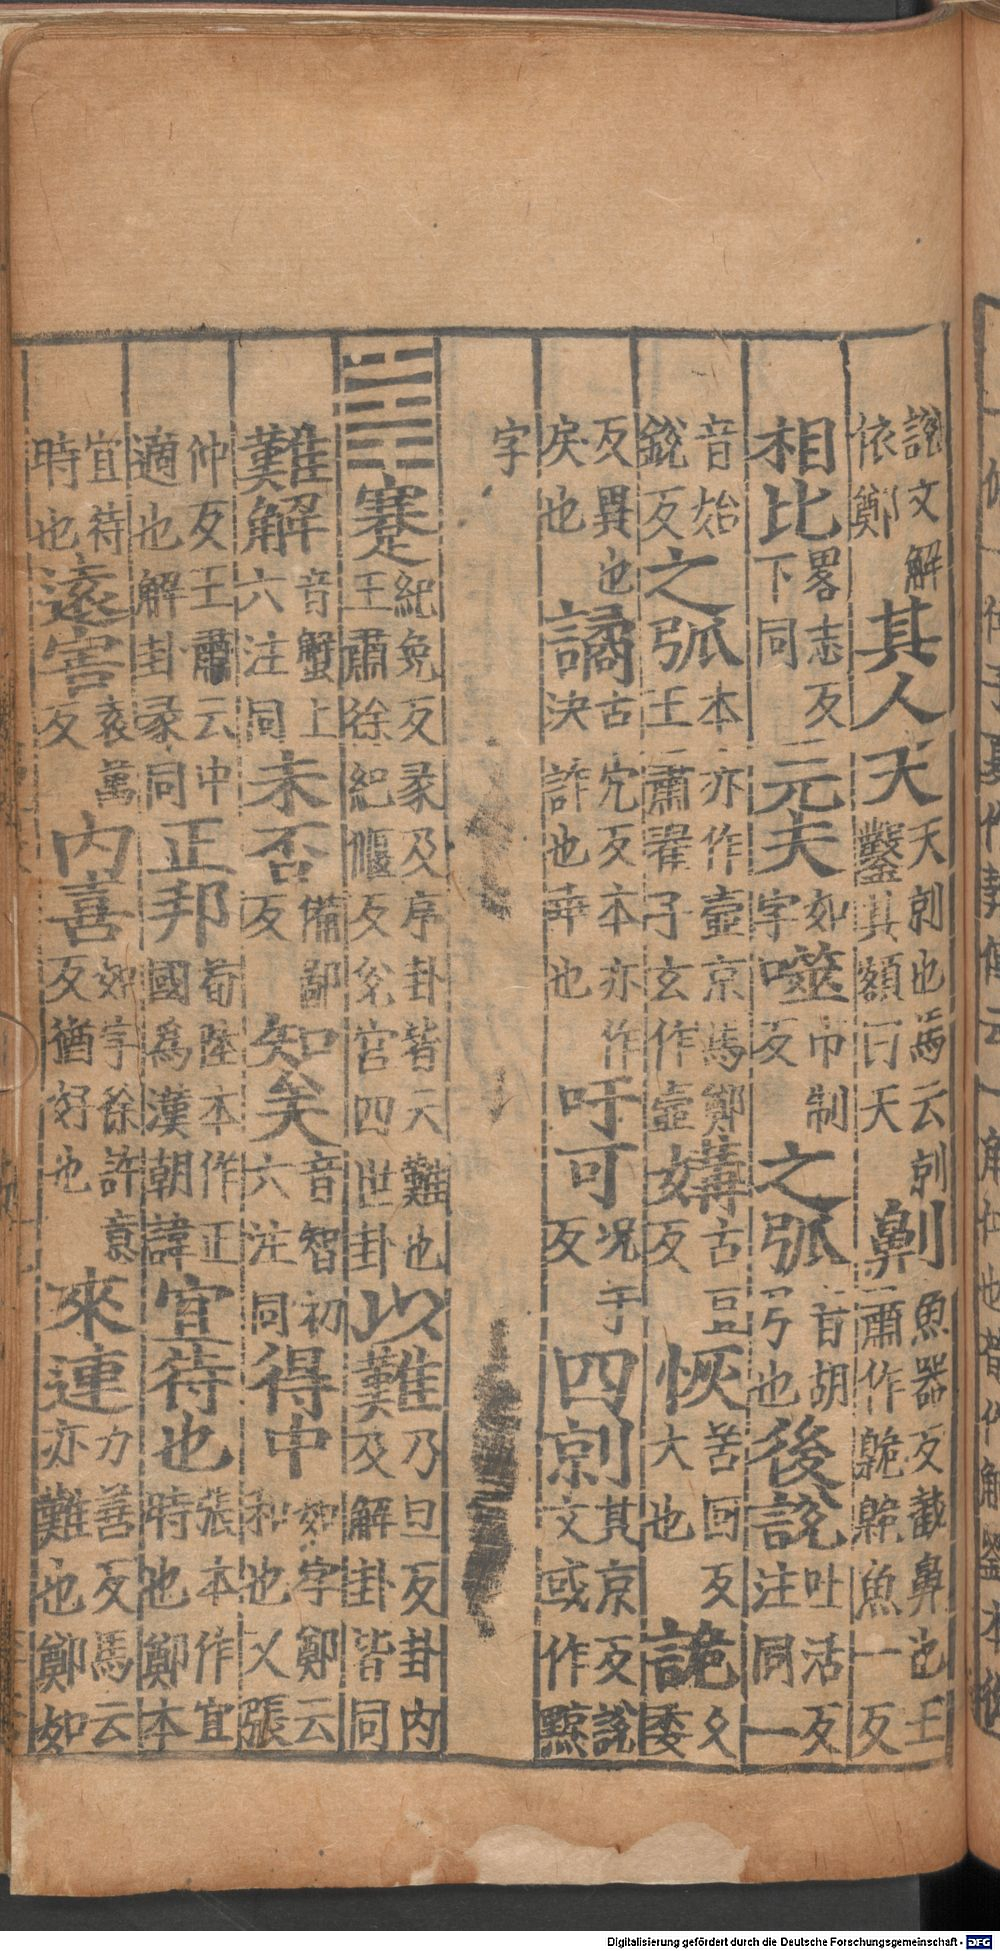 説文解依鄭其人天天剠也馬云剠鑿其額曰天劓魚器反截鼻也王肅作臲臲魚一反
相比畧志反下同元夫如字噬市制反之弧音胡弓也後説吐活反注同一
音始銳反之弧本亦作壺京馬鄭王肅翟子玄作壺媾古豆反恢苦回反大也詭久委
反異也戾也譎古穴反本亦作決詐也乖也吁可况于反四剠其京反說文或作黥
字
䷦蹇紀免反彖及序卦皆云難也王肅徐紀偃反兊宮四世卦以難乃旦反卦内及解卦皆同
難解音蟹上六注同未否備鄙反知矣音智初六注同得中如字鄭云和也又張
仲反王肅云中適也解卦彖同正邦荀陸本作正國爲漢朝諱宜待也張本作宜時也鄭本
宜待時也遠害袁萬反内喜如字徐許意反猶好也來連力善反馬云亦難也鄭如
Digitalisierung gefördert durch die Deutsche Forschungsgemeinschaft - DFG